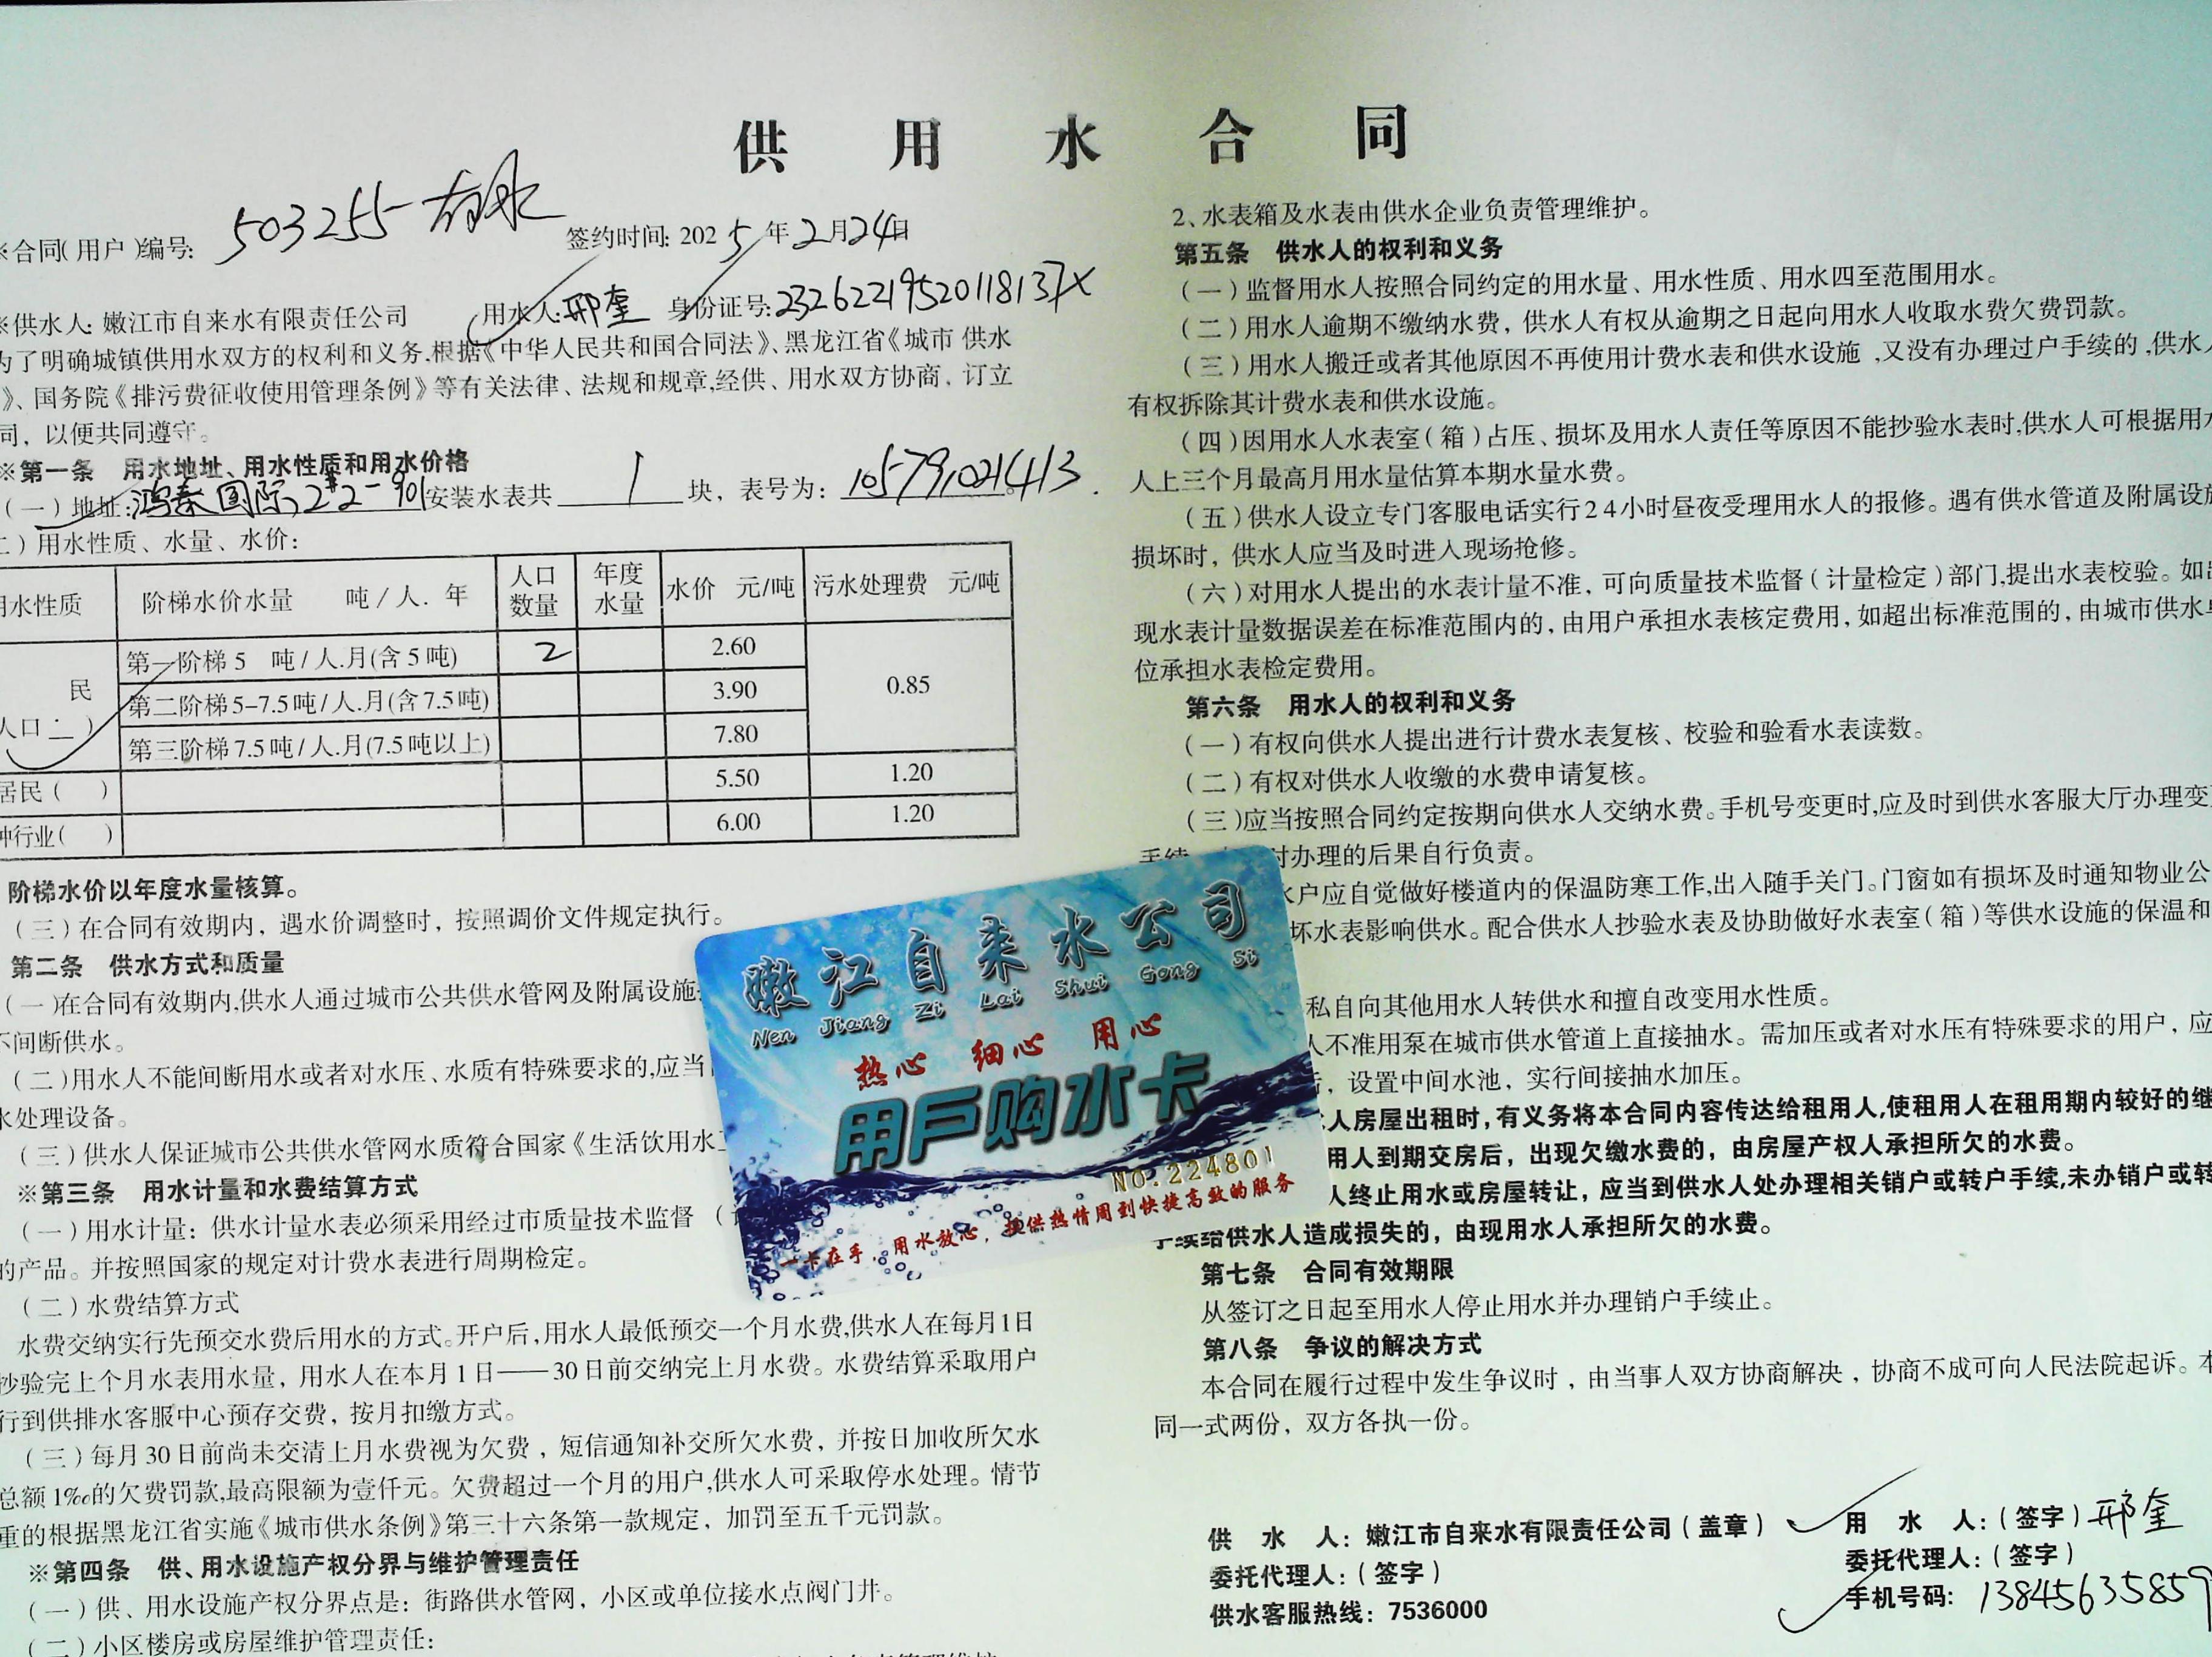 供用水合同
※合同(用户)编号: 503255-有水
签约时间: 2025年2月24日
※供水人: 嫩江市自来水有限责任公司 用水人: 邢奎 身份证号: 23262219520118137X
为了明确城镇供用水双方的权利和义务,根据《中华人民共和国合同法》、黑龙江省《城市供水
》、国务院《排污费征收使用管理条例》等有关法律、法规和规章,经供、用水双方协商，订立
同，以便共同遵守。
※第一条 用水地址、用水性质和用水价格
(一)地址: 鸿泰国际,2#2-901 安装水表共 1 块，表号为: 105791021413.
二)用水性质、水量、水价:
用水性质 阶梯水价水量 吨/人.年 人口数量 年度水量 水价 元/吨 污水处理费 元/吨
民
人口:二)
第一阶梯5 吨/人.月(含5吨) 2 2.60 0.85
第二阶梯5-7.5吨/人.月(含7.5吨) 3.90
第三阶梯7.5吨/人.月(7.5吨以上) 7.80
居民( ) 5.50 1.20
种行业( ) 6.00 1.20
阶梯水价以年度水量核算。
(三)在合同有效期内，遇水价调整时，按照调价文件规定执行。
第二条 供水方式和质量
(一)在合同有效期内,供水人通过城市公共供水管网及附属设施
不间断供水。
(二)用水人不能间断用水或者对水压、水质有特殊要求的,应当
水处理设备。
(三)供水人保证城市公共供水管网水质符合国家《生活饮用水
※第三条 用水计量和水费结算方式
(一)用水计量：供水计量水表必须采用经过市质量技术监督(
的产品。并按照国家的规定对计费水表进行周期检定。
(二)水费结算方式
水费交纳实行先预交水费后用水的方式。开户后,用水人最低预交一个月水费,供水人在每月1日
抄验完上个月水表用水量，用水人在本月1日——30日前交纳完上月水费。水费结算采取用户
行到供排水客服中心预存交费，按月扣缴方式。
(三)每月30日前尚未交清上月水费视为欠费，短信通知补交所欠水费，并按日加收所欠水
总额1‰的欠费罚款,最高限额为壹仟元。欠费超过一个月的用户,供水人可采取停水处理。情节
重的根据黑龙江省实施《城市供水条例》第三十六条第一款规定，加罚至五千元罚款。
※第四条 供、用水设施产权分界与维护管理责任
(一)供、用水设施产权分界点是：街路供水管网，小区或单位接水点阀门井。
(二)小区楼房或房屋维护管理责任：
2、水表箱及水表由供水企业负责管理维护。
第五条 供水人的权利和义务
(一)监督用水人按照合同约定的用水量、用水性质、用水四至范围用水。
(二)用水人逾期不缴纳水费，供水人有权从逾期之日起向用水人收取水费欠费罚款。
(三)用水人搬迁或者其他原因不再使用计费水表和供水设施，又没有办理过户手续的,供水人
有权拆除其计费水表和供水设施。
(四)因用水人水表室(箱)占压、损坏及用水人责任等原因不能抄验水表时,供水人可根据用水
人上三个月最高月用水量估算本期水量水费。
(五)供水人设立专门客服电话实行24小时昼夜受理用水人的报修。遇有供水管道及附属设施
损坏时，供水人应当及时进入现场抢修。
(六)对用水人提出的水表计量不准，可向质量技术监督(计量检定)部门,提出水表校验。如出
现水表计量数据误差在标准范围内的，由用户承担水表核定费用，如超出标准范围的，由城市供水单
位承担水表检定费用。
第六条 用水人的权利和义务
(一)有权向供水人提出进行计费水表复核、校验和验看水表读数。
(二)有权对供水人收缴的水费申请复核。
(三)应当按照合同约定按期向供水人交纳水费。手机号变更时,应及时到供水客服大厅办理变更
手续 时办理的后果自行负责。
水户应自觉做好楼道内的保温防寒工作,出入随手关门。门窗如有损坏及时通知物业公
坏水表影响供水。配合供水人抄验水表及协助做好水表室(箱)等供水设施的保温和
私自向其他用水人转供水和擅自改变用水性质。
人不准用泵在城市供水管道上直接抽水。需加压或者对水压有特殊要求的用户，应
，设置中间水池，实行间接抽水加压。
人房屋出租时,有义务将本合同内容传达给租用人,使租用人在租用期内较好的继
用人到期交房后，出现欠缴水费的，由房屋产权人承担所欠的水费。
人终止用水或房屋转让，应当到供水人处办理相关销户或转户手续,未办销户或转
手续给供水人造成损失的，由现用水人承担所欠的水费。
第七条 合同有效期限
从签订之日起至用水人停止用水并办理销户手续止。
第八条 争议的解决方式
本合同在履行过程中发生争议时，由当事人双方协商解决，协商不成可向人民法院起诉。本
同一式两份，双方各执一份。
供 水 人：嫩江市自来水有限责任公司(盖章)
委托代理人：(签字)
供水客服热线：7536000
用 水 人：(签字) 邢奎
委托代理人：(签字)
手机号码： 13845635859
嫩江自来水公司
Nen Jiang Zi Lai Shui Gong Si
热心 细心 用心
用户购水卡
NO.224801
一卡在手，用水放心，提供热情周到快捷高效的服务